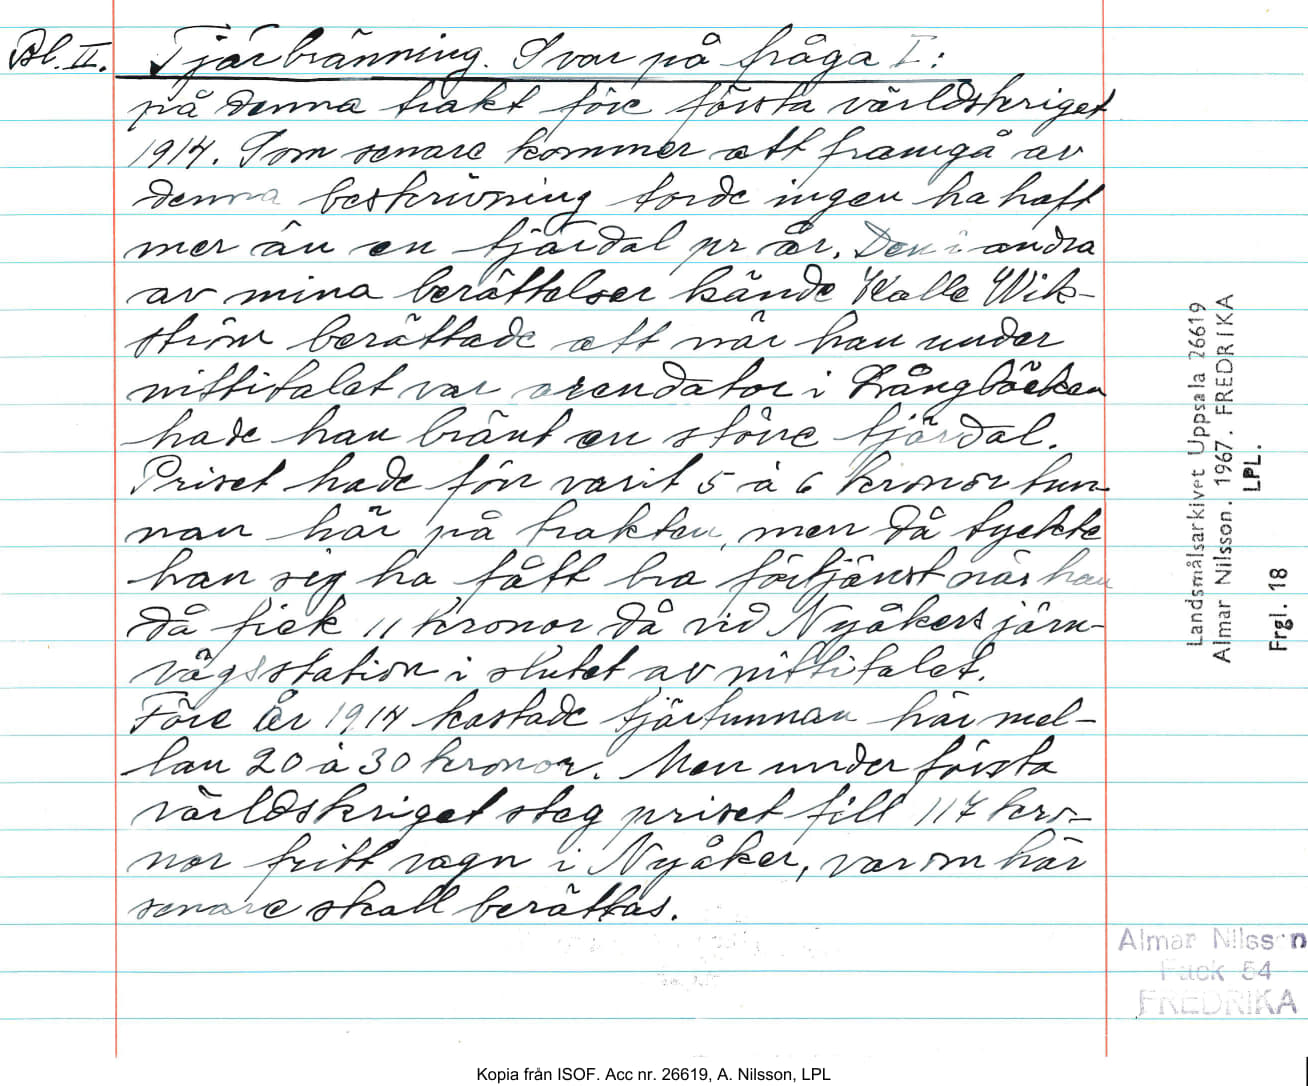 Bl. II. Tjärbränning. Svar på fråga I:
på denna trakt före första världskriget
1914. Som senare kommer att framgå av
denna beskrivning torde ingen ha haft
mer än en tjärdal pr år. Den i andra
av mina berättelser kände Kalle Wik-
ström berättade att när han under
nittitalet var arendator i Långbäcken
hade han bränt en större tjärdal.
Priset hade förr varit 5 à 6 kronor tun-
nan här på trakten, men då tyckte
han sig ha fått bra förtjänst när han
då fick 11 kronor då vid Nyåkers järn-
vägsstation i slutet av nittitalet.
Före år 1914 kostade tjärtunnan här mel-
lan 20 à 30 kronor. Men under första
världskriget steg priset till 117 kro-
nor fritt vagn i Nyåker, varom här
senare skall berättas.
Landsmålsarkivet Uppsala 26619
Almar Nilsson. 1967. FREDRIKA
LPL.
Frgl. 18
Almar Nilsson
Fack 54
FREDRIKA
Kopia från ISOF. Acc nr. 26619, A. Nilsson, LPL